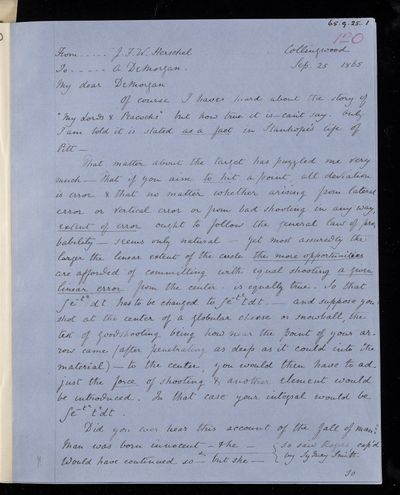 65.9.25.1
120
From ..... J.F.W. Herschel Collingwood
To ..... A DeMorgan. Sep. 25 1865
My dear DeMorgan
Of course I have heard about the story of
"My Lords & Peacocks" but how true it is - can't say. Only
I am told it is stated as a fact in Stanhope's life of
Pitt -
That matter about the target has puzzled me very
much - That if you aim to hit a point all deviation
is error & that no matter whether arising from lateral
error or vertical error or from bad shooting in any way,
extent of error ought to follow the general law of pro
bability - seems only natural - Yet most assuredly the
larger the linear extent of the circle the more opportunities
are afforded of committing with equal shooting a given
linear error from the center is equally true. So that
∫e^-t² dt has to be changed to ∫e^-t² t dt. - and suppose you
shot at the center of a globular cheese or snowball the
test of good shooting being how near the point of your ar-
row came (after penetrating as deep as it could into the
material) - to the center, you would then have to ad
just the force of shooting & another element would
be introduced. In that case your integral would be
∫e^-t² t² dt.
Did you ever hear this account of the fall of man?
Man was born innocent - & he - so saw Rogers cap'd
Would have continued so - but she - by Sydney Smith
So